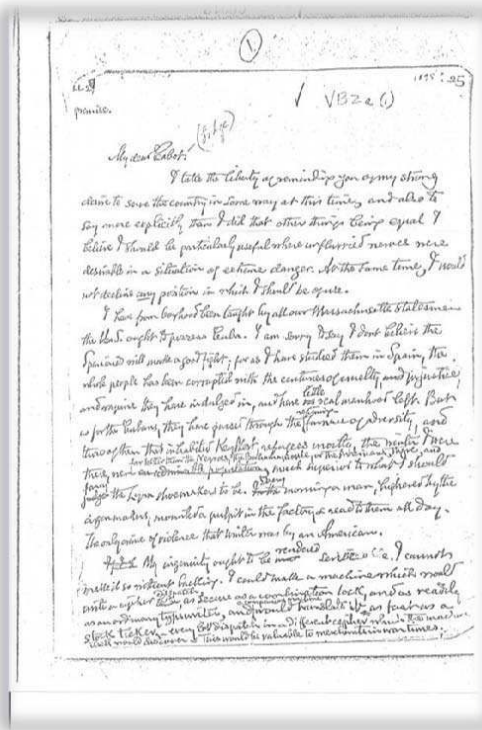 1
1895 : 25
VB2a(1)
My dear Cabot:
I take the liberty of reminding you of my strong
desire to serve the country in some way at this time, and also to
say more explicitly than I did that other things being equal I
believe I should be particularly useful where unflurried nerves were
desirable in a situation of extreme danger. At the same time, I would
not decline any position in which I should be of use.
I have from boyhood been taught by all our Massachusetts statesmen
the U.S. ought to possess Cuba. I am sorry to say I dont believe the
Spaniard will make a good fight; for as I have studied them in Spain, the
whole people has been corrupted with the centuries of cruelty and injustice
and rapine they have indulged in, and have little real manhood left. But
as for the Cubans, they have passed through the refining furnace of adversity, and
those of them that inhabited Key West, refugees mostly, the winter I were
there, were an admirable population, much superior to what I should
judge the Lynn shoemakers to be. Every morning a man, hired by the
cigarmakers, mounted a pulpit in the factory & read to them all day.
The only one of violence that winter was by an American.
My ingenuity ought to be rendered I cannot
write it so without . I could make a machine which would
write a cipher as secure as a combination lock, and as readily
as an ordinary typewriter, and would translate it, as fast as a
stock ticker, every dispatch in a different cipher which the machine
would discover. This would be valuable to merchants in war times.